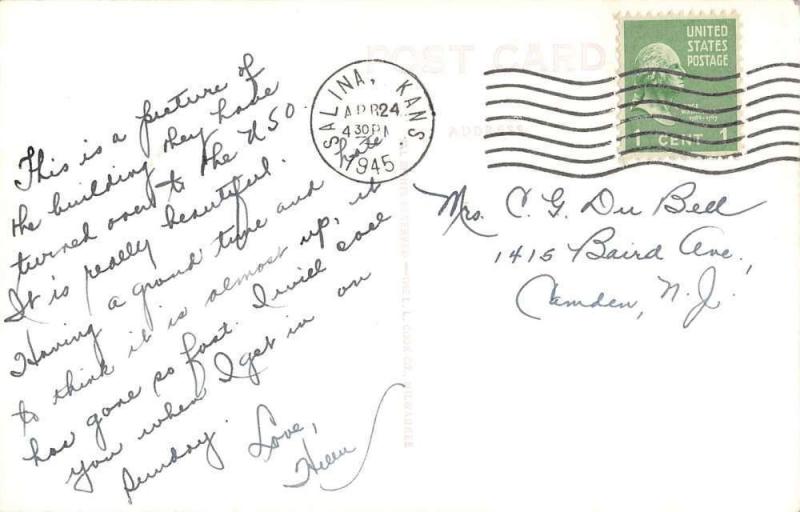 POST CARD
ADDRESS
SALINA, KANS.
APR 24
4 30 PM
1945
UNITED
STATES
POSTAGE
1 CENT 1
This is a picture of
the building they have
turned over to the USO.
It is really beautiful.
Having a grand time and hate
to think it is almost up, it
has gone so fast. I will call
you when I get in on
Sunday.
Love,
Helen
Mrs. C. G. Du Bell
1415 Baird Ave.,
Camden, N. J.
THE L. L. COOK CO., MILWAUKEE